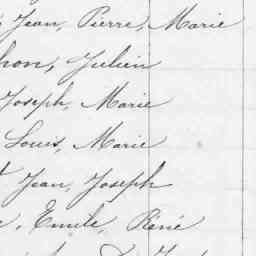 Jean, Pierre, Marie
hon, Julien
Joseph, Marie
Louis, Marie
Jean, Joseph
, Emile, René